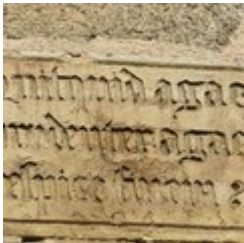 quitquid agas
prudenter agas
respice finem :